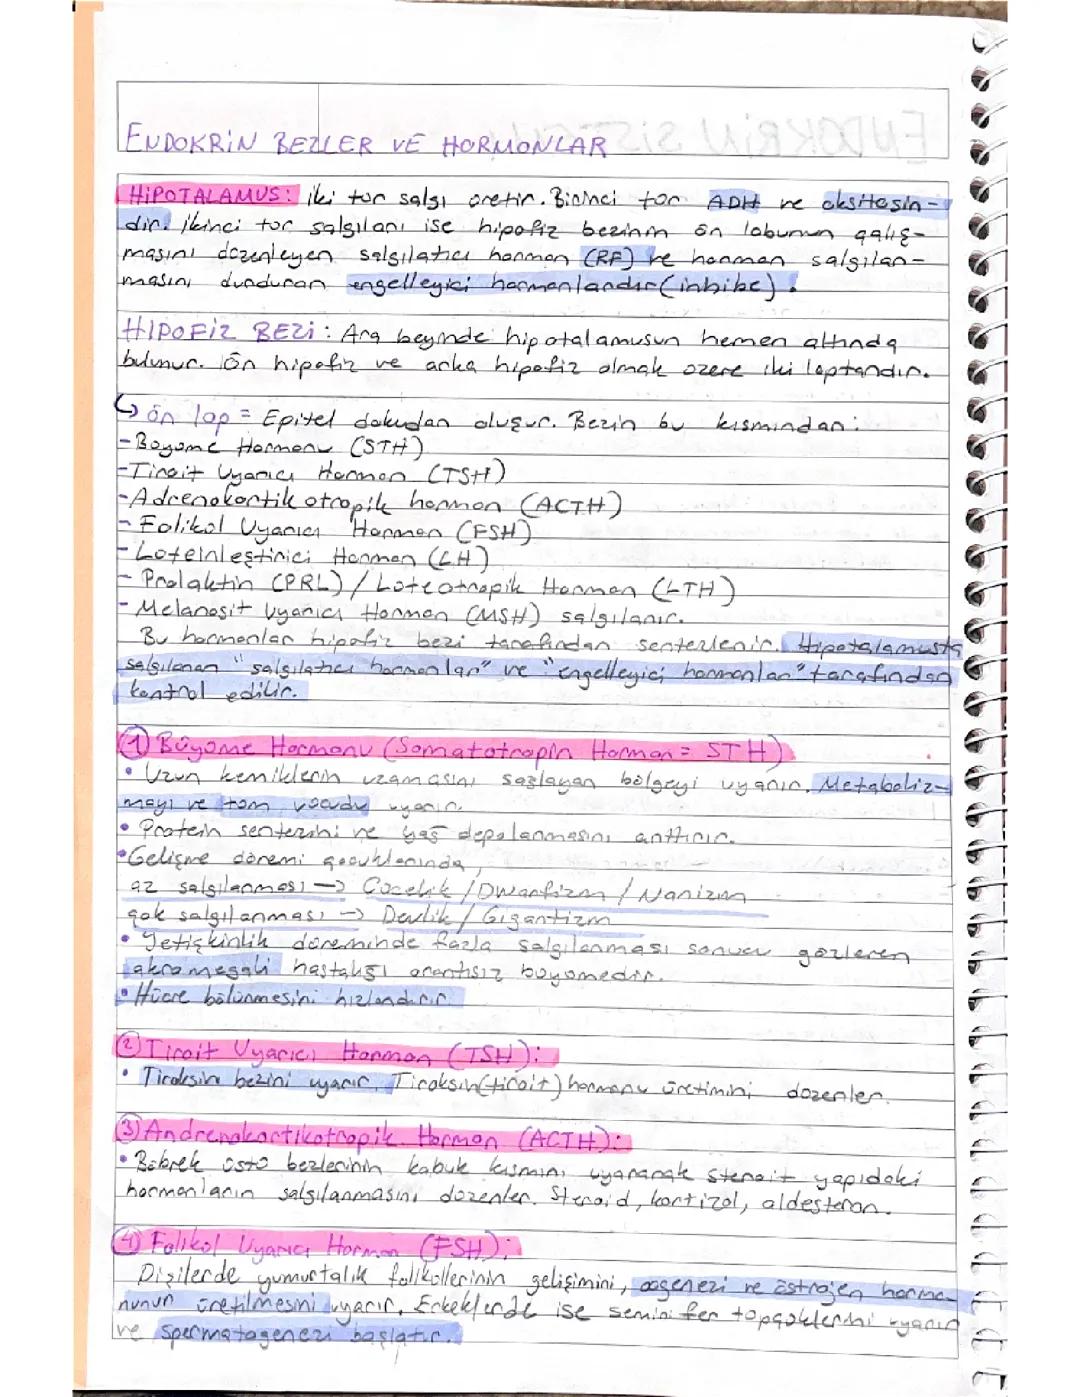 ENDOKRİN BEZLER VE HORMONLAR
HİPOTALAMUS: İki tür salgı üretir. Birinci tür ADH ve oksitosin-
dir. İkinci tür salgıları ise hipofiz bezinin ön lobunun çalış-
masını düzenleyen salgılatıcı hormon (RF) ve hormon salgılan-
masını durduran engelleyici hormonlardır (inhibe).
HİPOFİZ BEZİ: Ara beyinde hipotalamusun hemen altında
bulunur. Ön hipofiz ve arka hipofiz olmak üzere iki loptandır.
↳ ön lop = Epitel dokudan oluşur. Bezin bu kısmından:
- Büyüme Hormonu (STH)
- Tiroit Uyarıcı Hormon (TSH)
- Adrenokortikotropik hormon (ACTH)
- Folikül Uyarıcı Hormon (FSH)
- Lüteinleştirici Hormon (LH)
- Prolaktin (PRL) / Lüteotropik Hormon (LTH)
- Melanosit Uyarıcı Hormon (MSH) salgılanır.
Bu hormonlar hipofiz bezi tarafından sentezlenir. Hipotalamusta
salgılanan "salgılatıcı hormonlar" ve "engelleyici hormonlar" tarafından
kontrol edilir.
① Büyüme Hormonu (Somatotropin Hormon = STH)
• Uzun kemiklerin uzamasını sağlayan bölgeyi uyarır. Metaboliz-
mayı ve tüm vücudu uyarır.
• Protein sentezini ve yağ depolanmasını arttırır.
• Gelişme dönemi çocuklarında,
az salgılanması → Cücelik / Dwarfizm / Nanizm
çok salgılanması → Devlik / Gigantizm
• Yetişkinlik döneminde fazla salgılanması sonucu gözlenen
akromegali hastalığı orantısız büyümedir.
• Hücre bölünmesini hızlandırır.
② Tiroit Uyarıcı Hormon (TSH):
• Tiroksin bezini uyarır. Tiroksin (tiroit) hormonu üretimini düzenler.
③ Andrenokortikotropik Hormon (ACTH):
• Böbrek üstü bezlerinin kabuk kısmını uyararak steroit yapıdaki
hormonların salgılanmasını düzenler. Steroid, kortizol, aldesteron.
④ Folikül Uyarıcı Hormon (FSH):
Dişilerde yumurtalık foliküllerinin gelişimini, oogenezi ve östrojen hormo-
nunun üretilmesini uyarır. Erkeklerde ise seminifer tüpçüklerini uyarır
ve spermatogenezi başlatır.